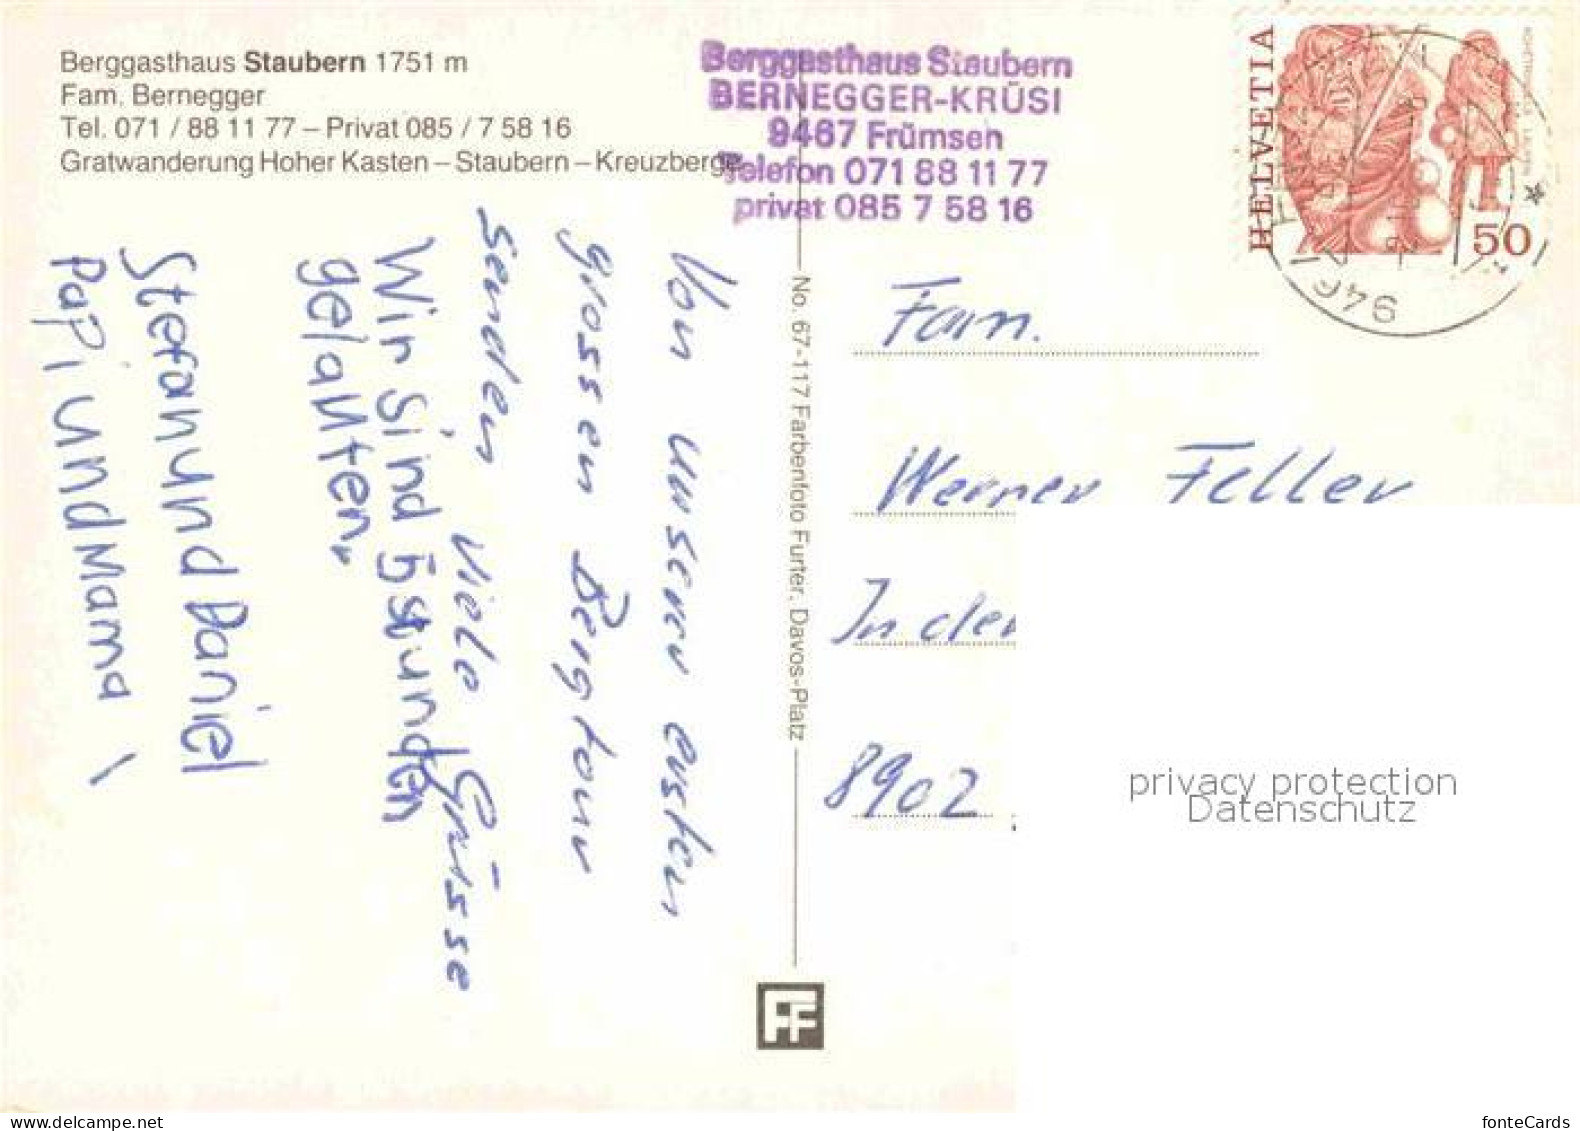 Berggasthaus Staubern 1751 m
Fam. Bernegger
Tel. 071 / 88 11 77 – Privat 085 / 7 58 16
Gratwanderung Hoher Kasten – Staubern – Kreuzberge
Berggasthaus Staubern
BERNEGGER-KRÜSI
9467 Frümsen
Telefon 071 88 11 77
privat 085 7 58 16
HELVETIA
50
946
Von unserer ersten
grossen Bergtour
senden viele Grüsse
Wir sind 5 stunden
gelauften.
Stefan und Daniel
Papi und Mama
No. 67-117 Farbenfoto Furter, Davos-Platz
FF
Fam.
Werner Feller
In der
8902
privacy protection
Datenschutz
fonteCards